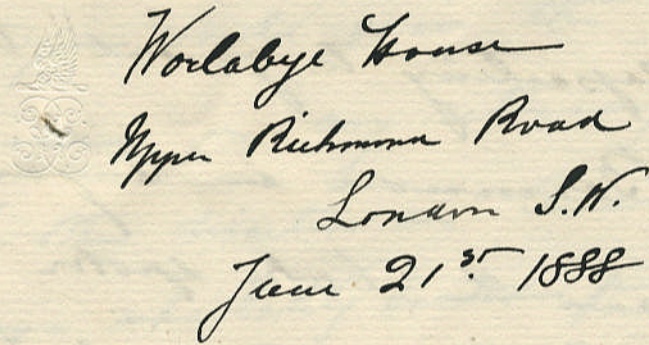 Worlabye House
Upper Richmond Road
London S.W.
June 21st 1888